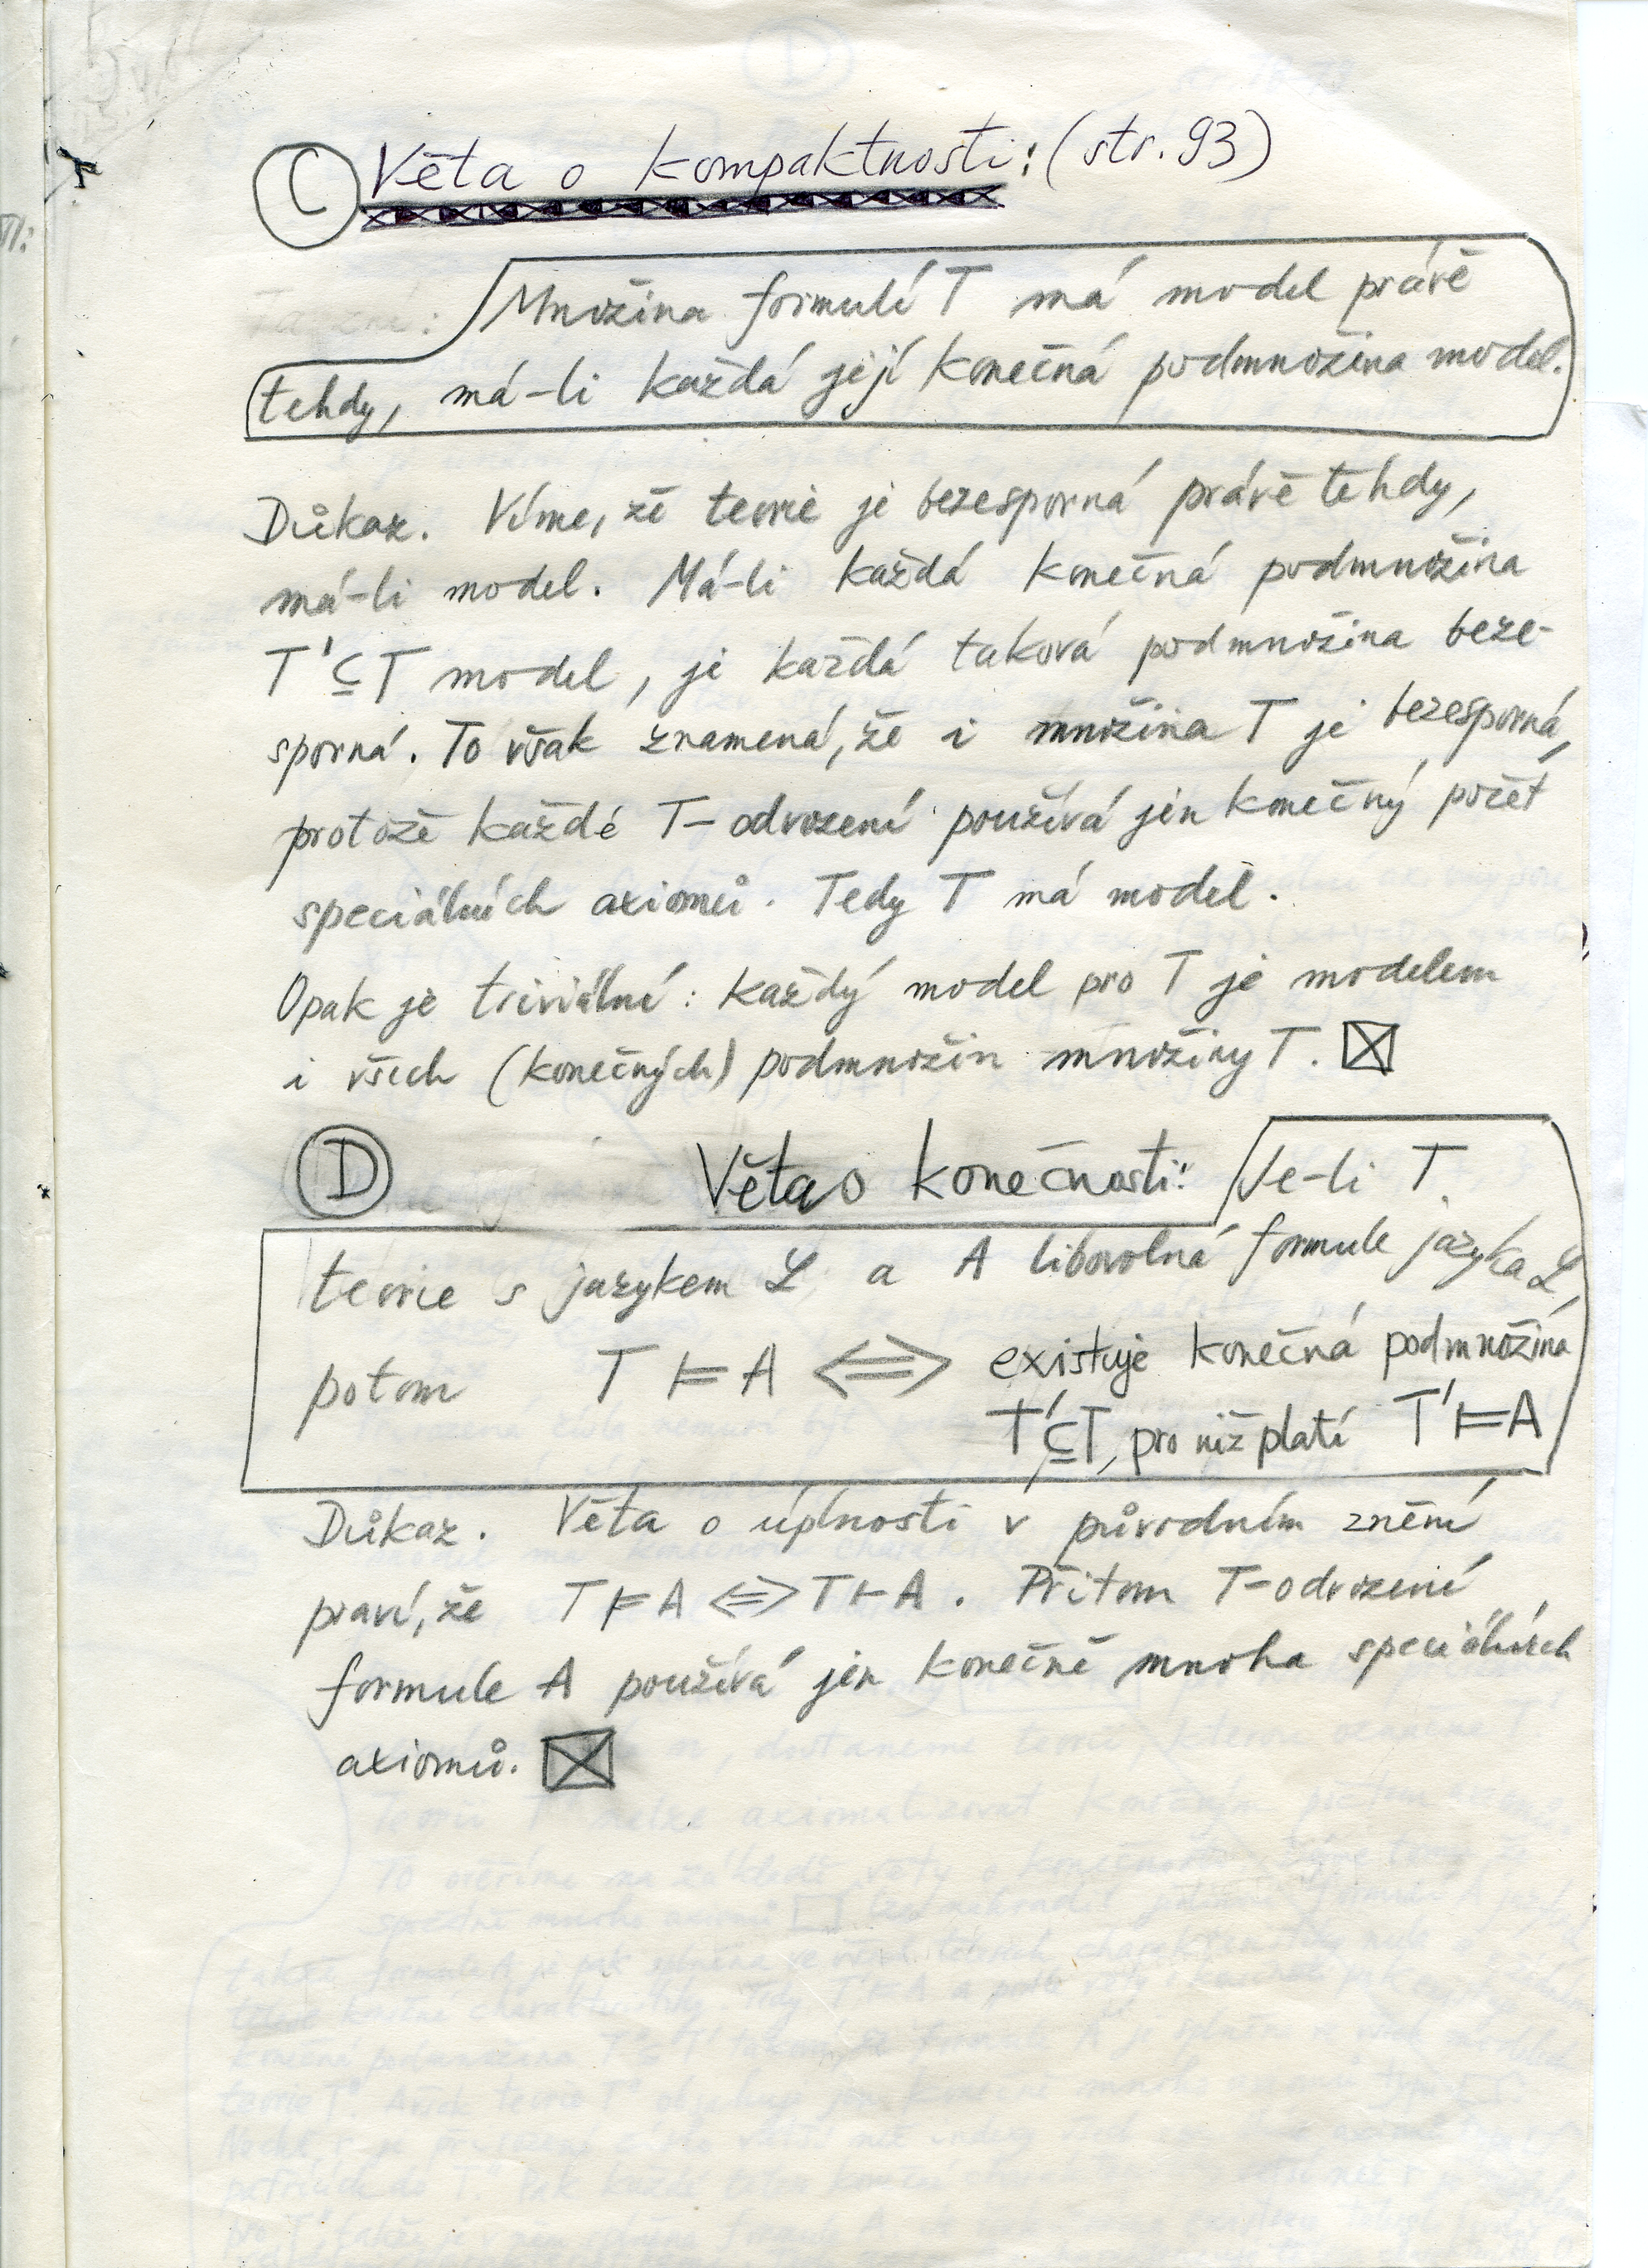 C Věta o kompaktnosti: (str. 93)
Množina formulí T má model právě
tehdy, má-li každá její konečná podmnožina model.
Důkaz. Víme, že teorie je bezesporná právě tehdy,
má-li model. Má-li každá konečná podmnožina
T' ⊆ T model, je každá taková podmnožina beze-
sporná. To však znamená, že i množina T je bezesporná,
protože každé T-odvození používá jen konečný počet
speciálních axiomů. Tedy T má model.
Opak je triviální: každý model pro T je modelem
i všech (konečných) podmnožin množiny T. ☒
D Věta o konečnosti: Je-li T
teorie s jazykem L a A libovolná formule jazyka L,
potom T ⊨ A ⟺ existuje konečná podmnožina
T' ⊆ T, pro niž platí T' ⊨ A
Důkaz. Věta o úplnosti v původním znění
praví, že T ⊨ A ⟺ T ⊢ A. Přitom T-odvození
formule A používá jen konečně mnoha speciálních
axiomů. ☒